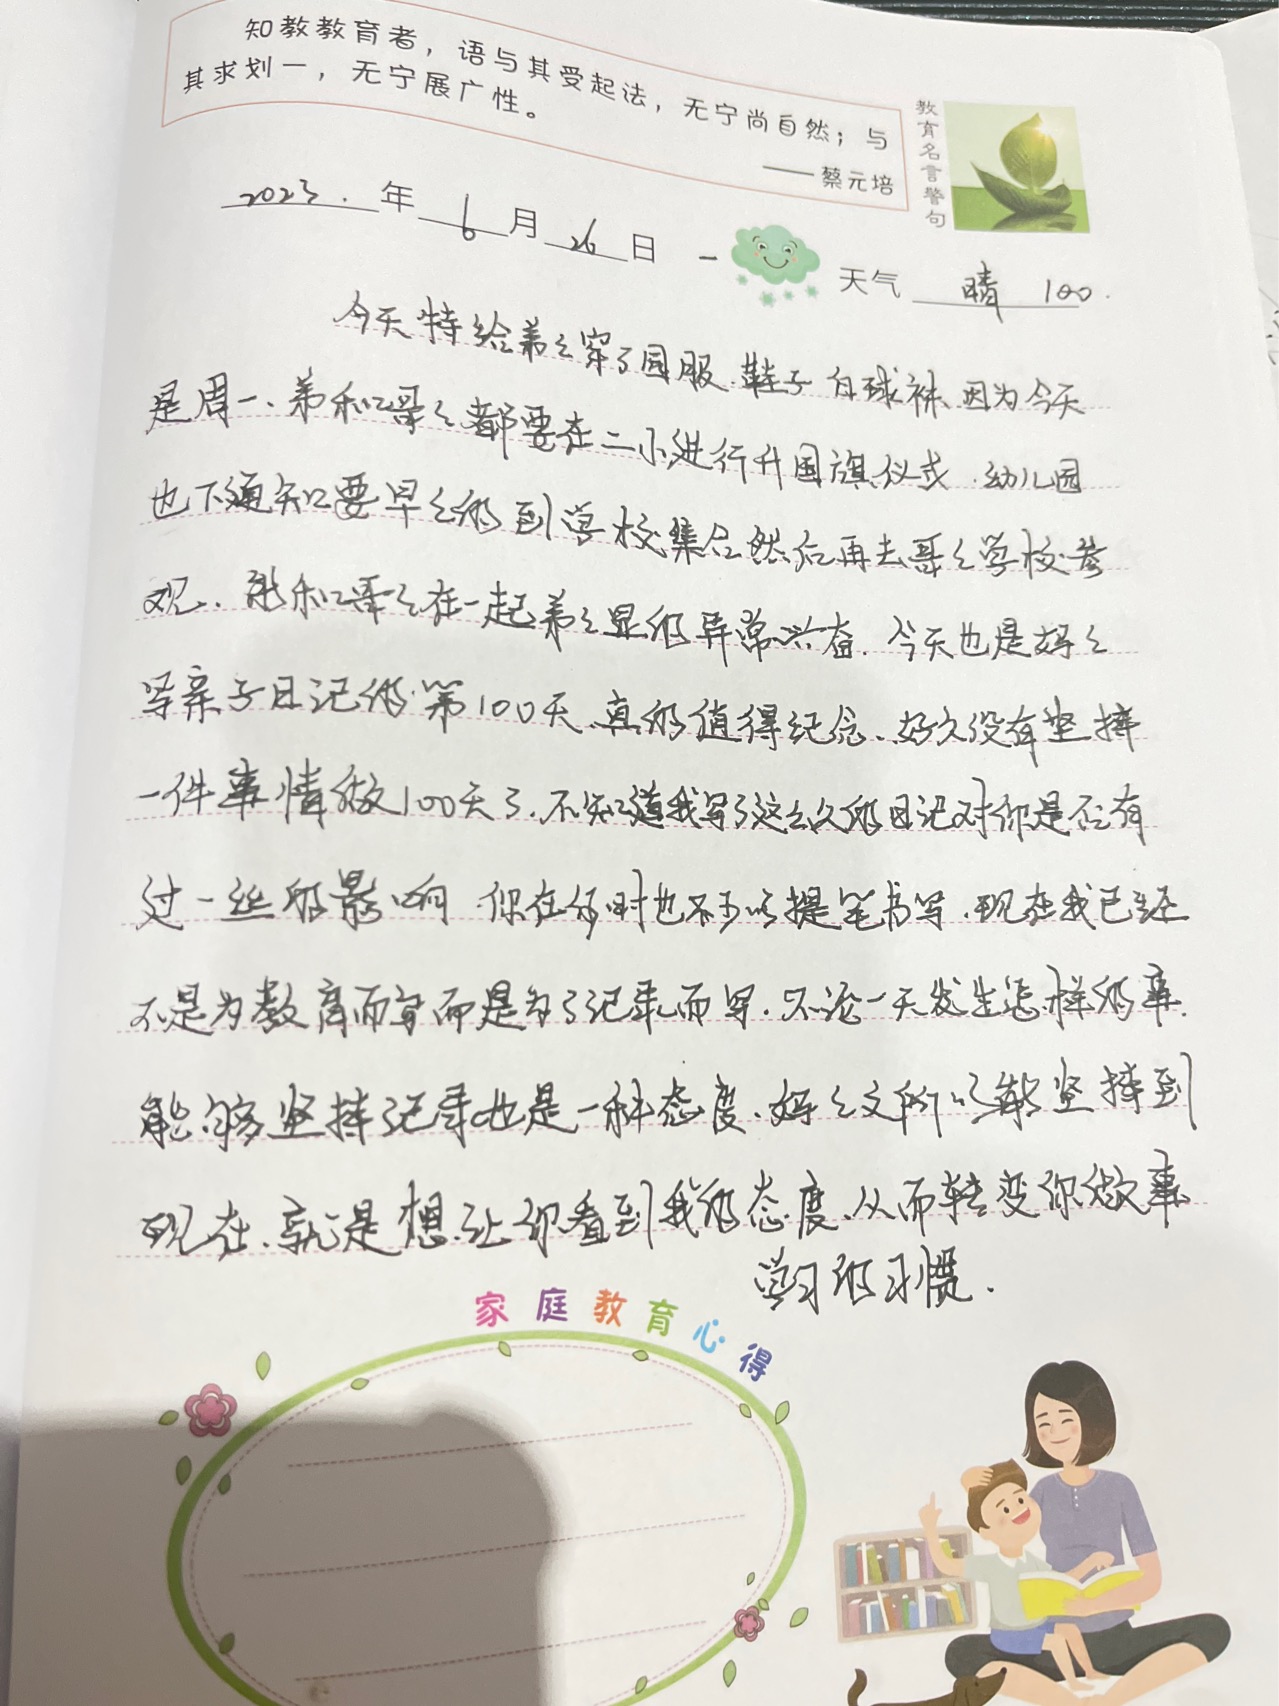 知教教育者，语与其受起法，无宁尚自然；与
其求划一，无宁展广性。
——蔡元培
教育名言警句
2023.年6月26日
天气 晴 100.
今天特给弟弟穿了园服、鞋子、白球袜、因为今天
是周一、弟和哥哥都要在二小进行升国旗仪式、幼儿园
也下通知要早早的到学校集合然后再去哥哥学校参
观、能和哥哥在一起弟弟显的异常兴奋、今天也是妈妈
写亲子日记的第100天、真的值得纪念、好久没有坚持
一件事情做100天了、不知道我写了这么久的日记对你是否有
过一丝的影响 你在 时也 以提笔书写、现在我已经
不是为教育而写而是为了记录而写、不论一天发生怎样的事、
能够坚持记录也是一种态度、妈妈之所以能坚持到
现在、就是想让你看到我的态度、从而转变你做事
学习的习惯.
家庭教育心得